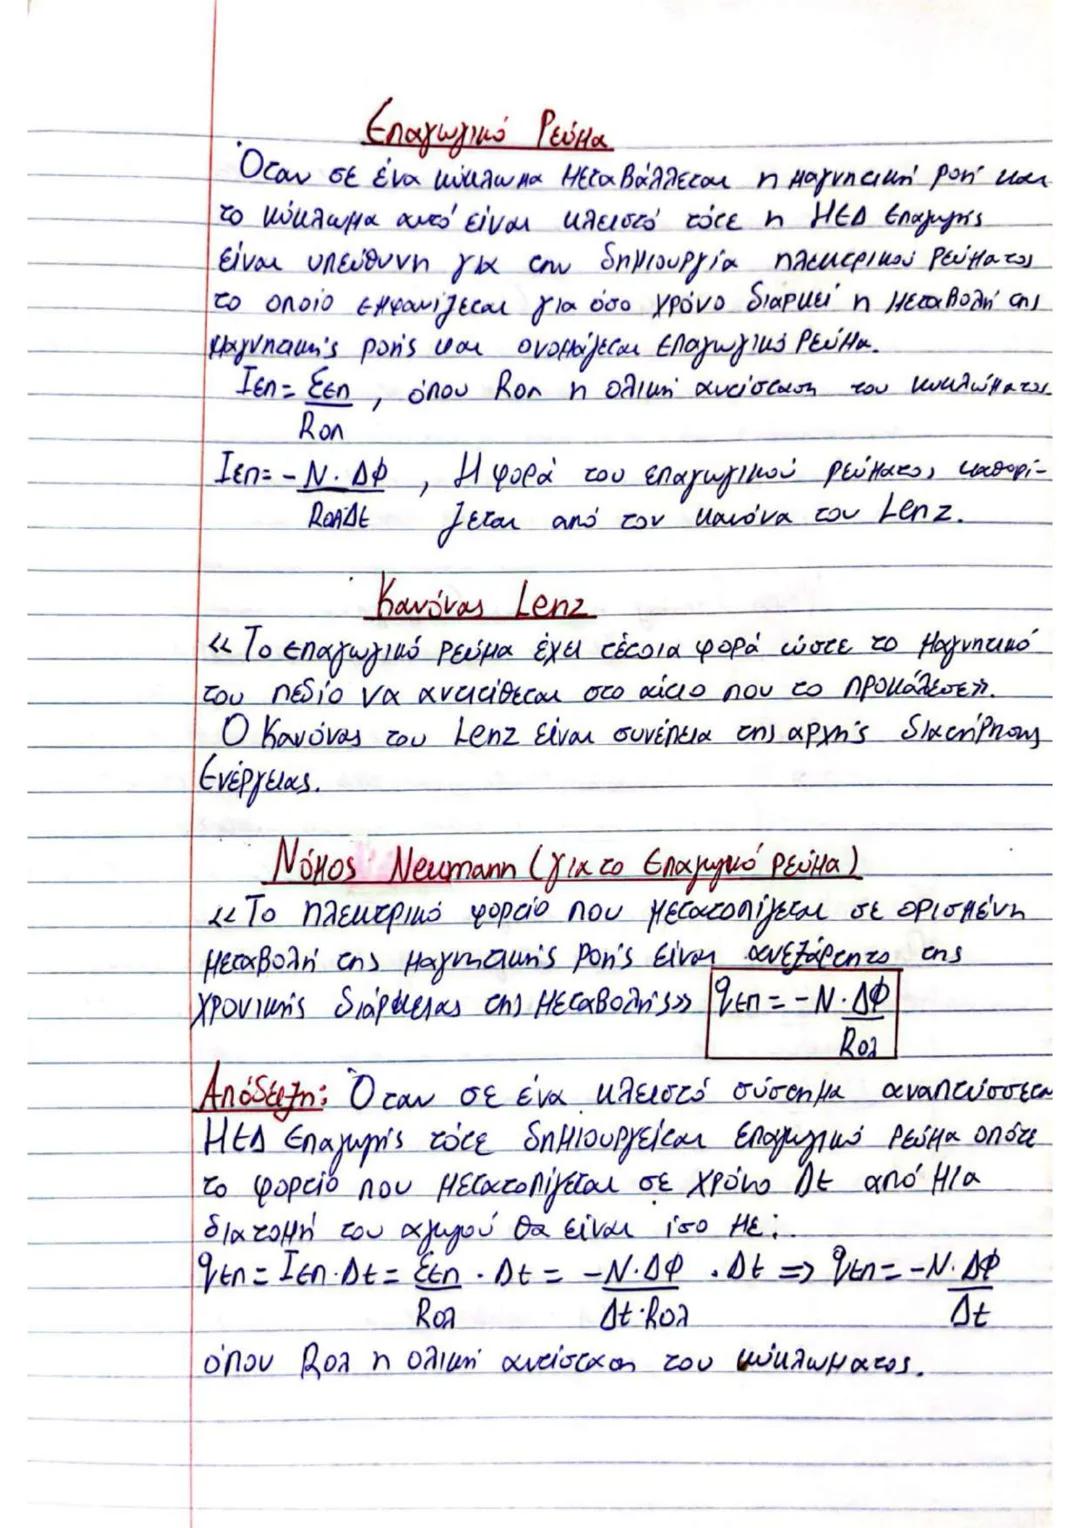 Επαγωγικό Ρεύμα
Όταν σε ένα κύκλωμα μεταβάλλεται η μαγνητική ροή και
το κύκλωμα αυτό είναι κλειστό τότε η ΗΕΔ Επαγωγής
είναι υπεύθυνη για την δημιουργία ηλεκτρικού ρεύματος
το οποίο εμφανίζεται για όσο χρόνο διαρκεί η μεταβολή της
μαγνητικής ροής και ονομάζεται Επαγωγικό Ρεύμα.
Iεπ = Εεπ/Rολ , όπου Rολ η ολική αντίσταση του κυκλώματος
Iεπ = - N·ΔΦ/RολΔt , Η φορά του επαγωγικού ρεύματος καθορί-
ζεται από τον κανόνα του Lenz.
Κανόνας Lenz
«Το επαγωγικό ρεύμα έχει τέτοια φορά ώστε το μαγνητικό
του πεδίο να αντιτίθεται στο αίτιο που το προκάλεσε».
Ο Κανόνας του Lenz είναι συνέπεια της αρχής διατήρησης
Ενέργειας.
Νόμος Neumann (για το Επαγωγικό ρεύμα)
«Το ηλεκτρικό φορτίο που μετατοπίζεται σε ορισμένη
μεταβολή της μαγνητικής ροής είναι ανεξάρτητο της
χρονικής διάρκειας της μεταβολής» qεπ = - N·ΔΦ/Rολ
Απόδειξη: Όταν σε ένα κλειστό σύστημα αναπτύσσεται
ΗΕΔ Επαγωγής τότε δημιουργείται επαγωγικό ρεύμα οπότε
το φορτίο που μετατοπίζεται σε χρόνο Δt από μια
διατομή του αγωγού θα είναι ίσο με:
qεπ = Iεπ·Δt = Εεπ/Rολ · Δt = -N·ΔΦ/Δt·Rολ · Δt => qεπ = -N·ΔΦ/Δt
όπου Rολ η ολική αντίσταση του κυκλώματος.